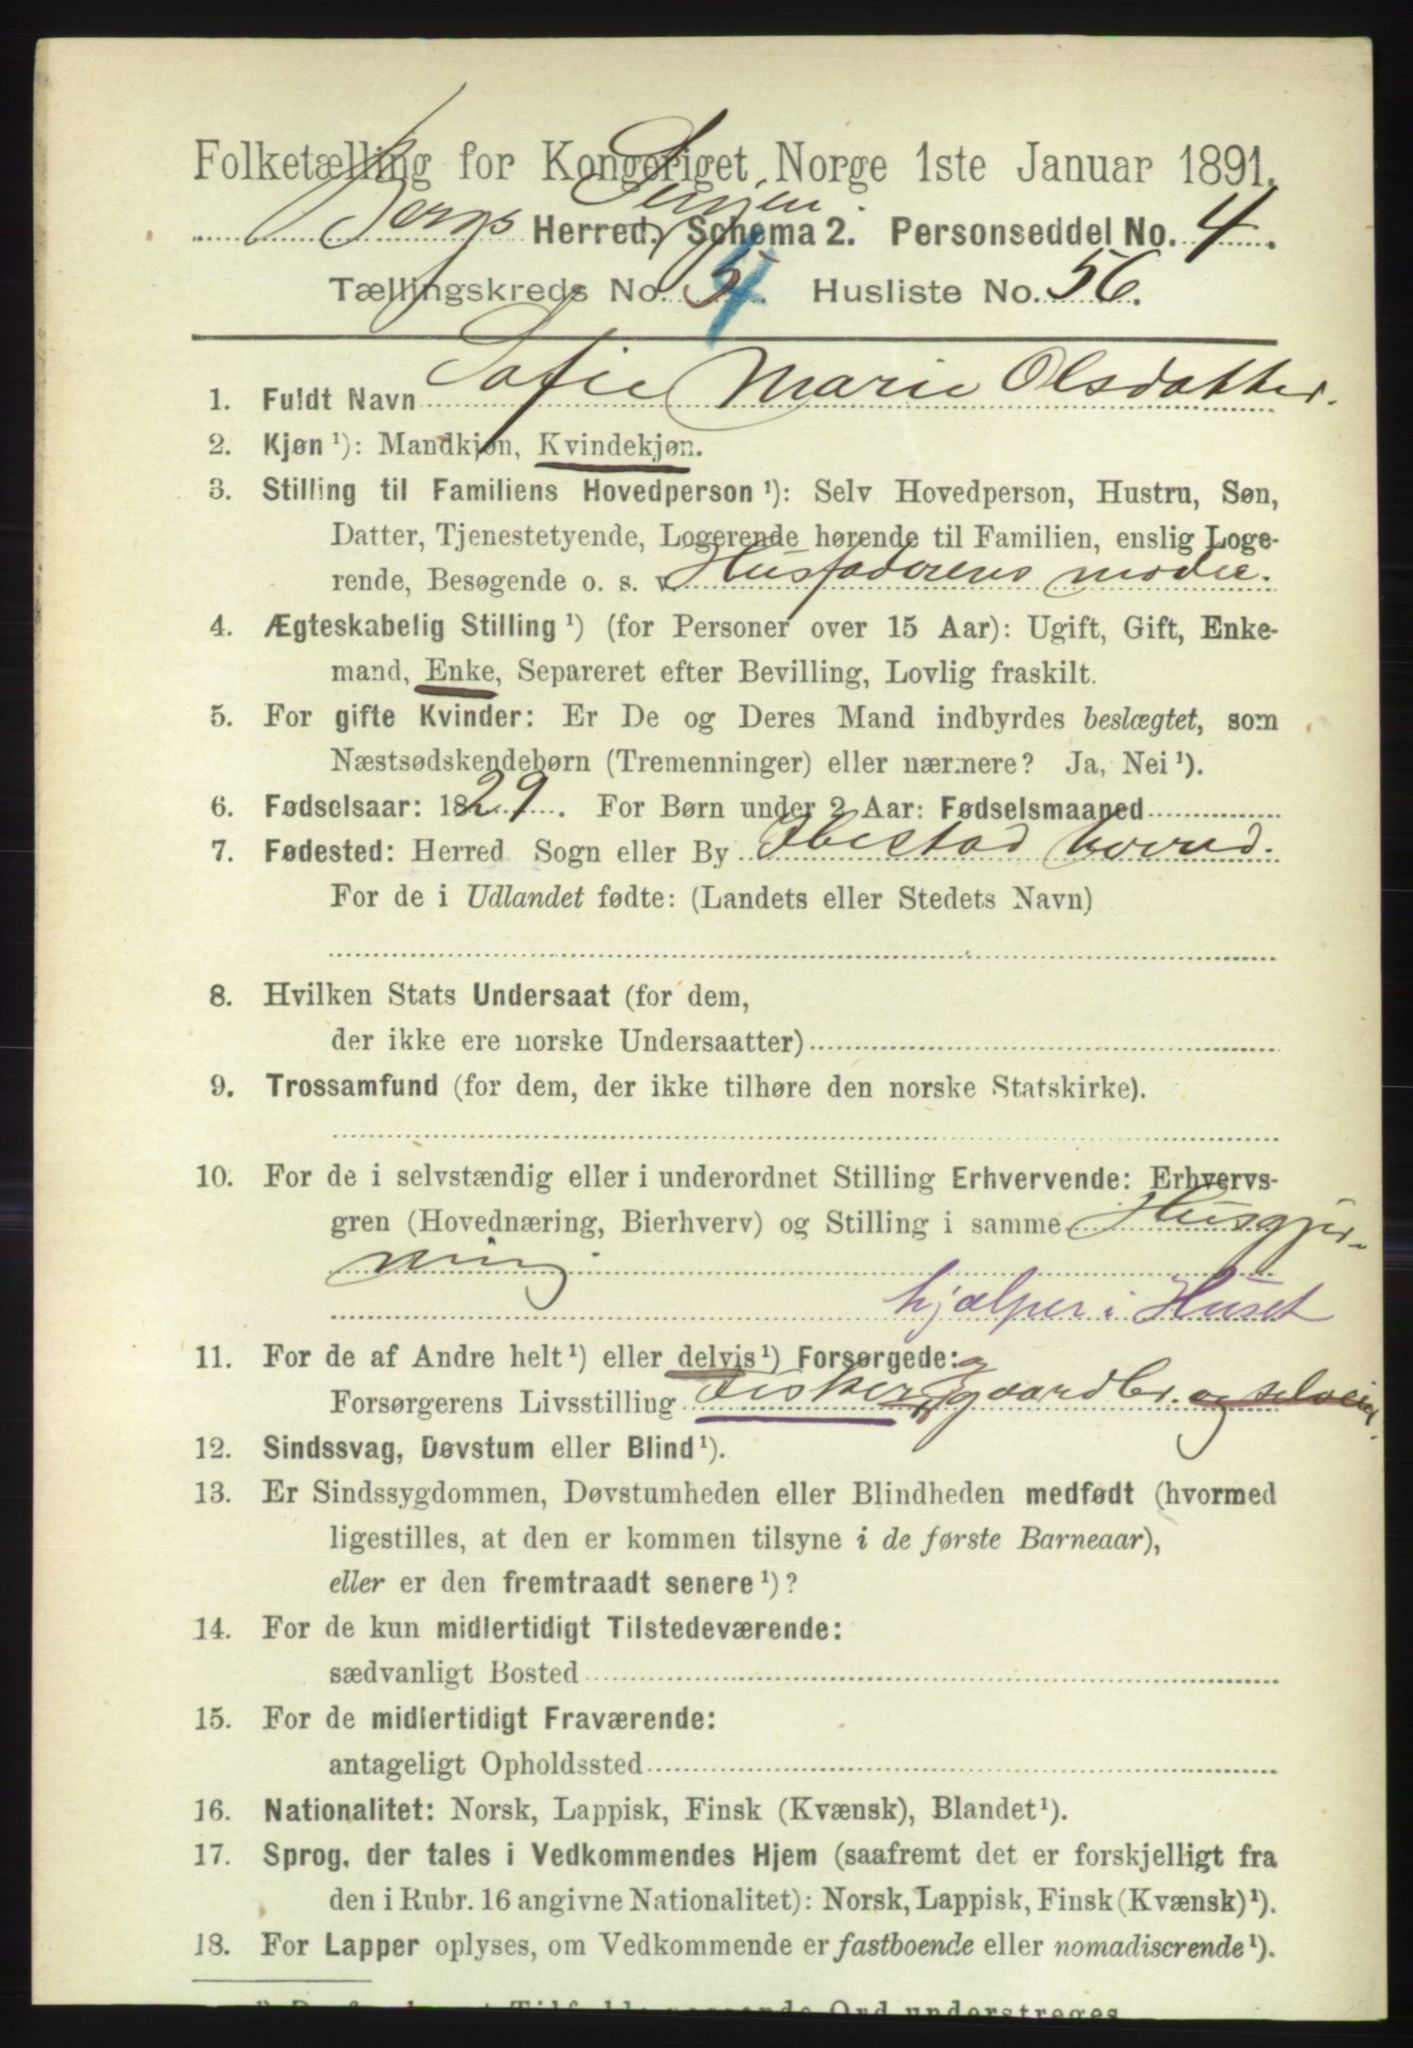 Folketælling for Kongeriget Norge 1ste Januar 1891.
Senjen.
Bergs Herred. Schema 2. Personseddel No. 4.
Tællingskreds No. 4. Husliste No. 56.
1. Fuldt Navn Sofie Marie Olsdatter.
2. Kjøn ¹): Mandkjøn, Kvindekjøn.
3. Stilling til Familiens Hovedperson ¹): Selv Hovedperson, Hustru, Søn,
Datter, Tjenestetyende, Logerende hørende til Familien, enslig Loge-
rende, Besøgende o. s. v. Husfaderens moder.
4. Ægteskabelig Stilling ¹) (for Personer over 15 Aar): Ugift, Gift, Enke-
mand, Enke, Separeret efter Bevilling, Lovlig fraskilt.
5. For gifte Kvinder: Er De og Deres Mand indbyrdes beslægtet, som
Næstsødskendebørn (Tremenninger) eller nærmere? Ja, Nei ¹).
6. Fødselsaar: 1829. For Børn under 2 Aar: Fødselsmaaned
7. Fødested: Herred Sogn eller By Ibestad herred.
For de i Udlandet fødte: (Landets eller Stedets Navn)
8. Hvilken Stats Undersaat (for dem,
der ikke ere norske Undersaatter)
9. Trossamfund (for dem, der ikke tilhøre den norske Statskirke).
10. For de i selvstændig eller i underordnet Stilling Erhvervende: Erhvervs-
gren (Hovednæring, Bierhverv) og Stilling i samme Husgjer-
ning
hjælper i Huset
11. For de af Andre helt ¹) eller delvis ¹) Forsørgede:
Forsørgerens Livsstilling Fisker og gaardbr. og selveier.
12. Sindssvag, Døvstum eller Blind ¹).
13. Er Sindssygdommen, Døvstumheden eller Blindheden medfødt (hvormed
ligestilles, at den er kommen tilsyne i de første Barneaar),
eller er den fremtraadt senere ¹)?
14. For de kun midlertidigt Tilstedeværende:
sædvanligt Bosted
15. For de midlertidigt Fraværende:
antageligt Opholdssted
16. Nationalitet: Norsk, Lappisk, Finsk (Kvænsk), Blandet ¹).
17. Sprog, der tales i Vedkommendes Hjem (saafremt det er forskjelligt fra
den i Rubr. 16 angivne Nationalitet): Norsk, Lappisk, Finsk (Kvænsk) ¹).
18. For Lapper oplyses, om Vedkommende er fastboende eller nomadiserende ¹).